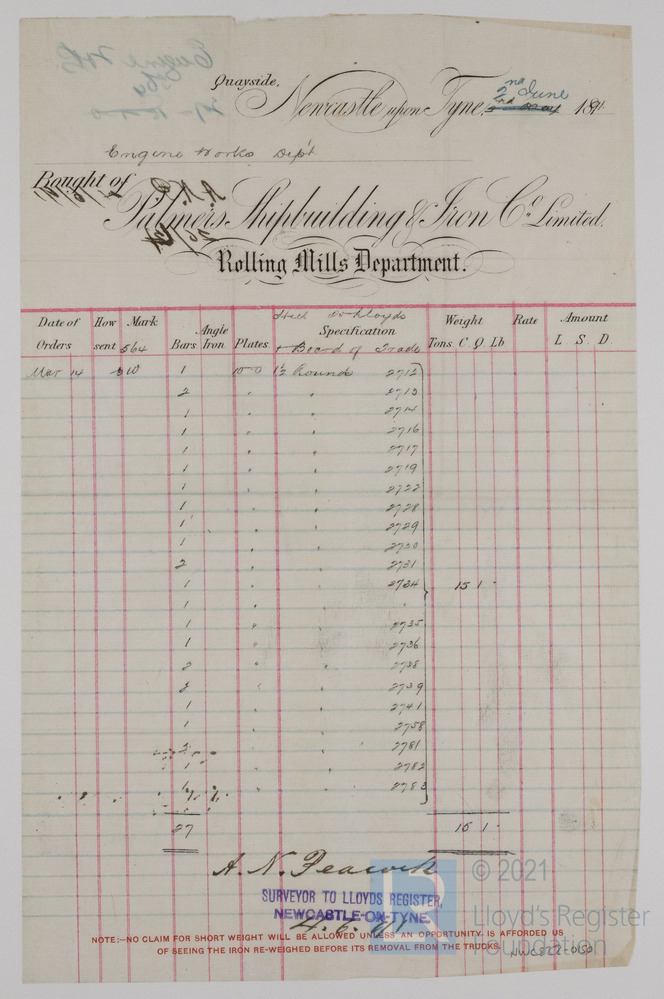 Quayside,
Newcastle upon Tyne, 2nd June 1891
Engine Works Dep't
Bought of
Palmers Shipbuilding & Iron Co. Limited.
Rolling Mills Department.
Steel Lloyds
Date of Orders How sent Mark 564 Bars Angle Iron Plates Specification + Board of Trade Weight Tons C Q Lb Rate Amount L S D
Mar 14 510 1 10-0 1½ Round 2712
2 " " 2713
1 " " 2714
1 " " 2716
1 " " 2717
1 " " 2719
1 " " 2722
1 " " 2728
1 " " 2729
1 " " 2730
2 " " 2731
1 " " 2734 15 1 -
1 " " "
1 " " 2735
1 " " 2736
2 " " 2738
2 " " 2739
1 " " 2741
1 " 2758
2 " " 2781
1 " " 2782
1 " " 2783
27 15 1 -
A. N. Peacock
SURVEYOR TO LLOYDS REGISTER,
NEWCASTLE-ON-TYNE.
4.6.91
NOTE:—NO CLAIM FOR SHORT WEIGHT WILL BE ALLOWED UNLESS AN OPPORTUNITY IS AFFORDED US
OF SEEING THE IRON RE-WEIGHED BEFORE ITS REMOVAL FROM THE TRUCKS.
NWC822-0150
© 2021
Lloyd's Register
Foundation